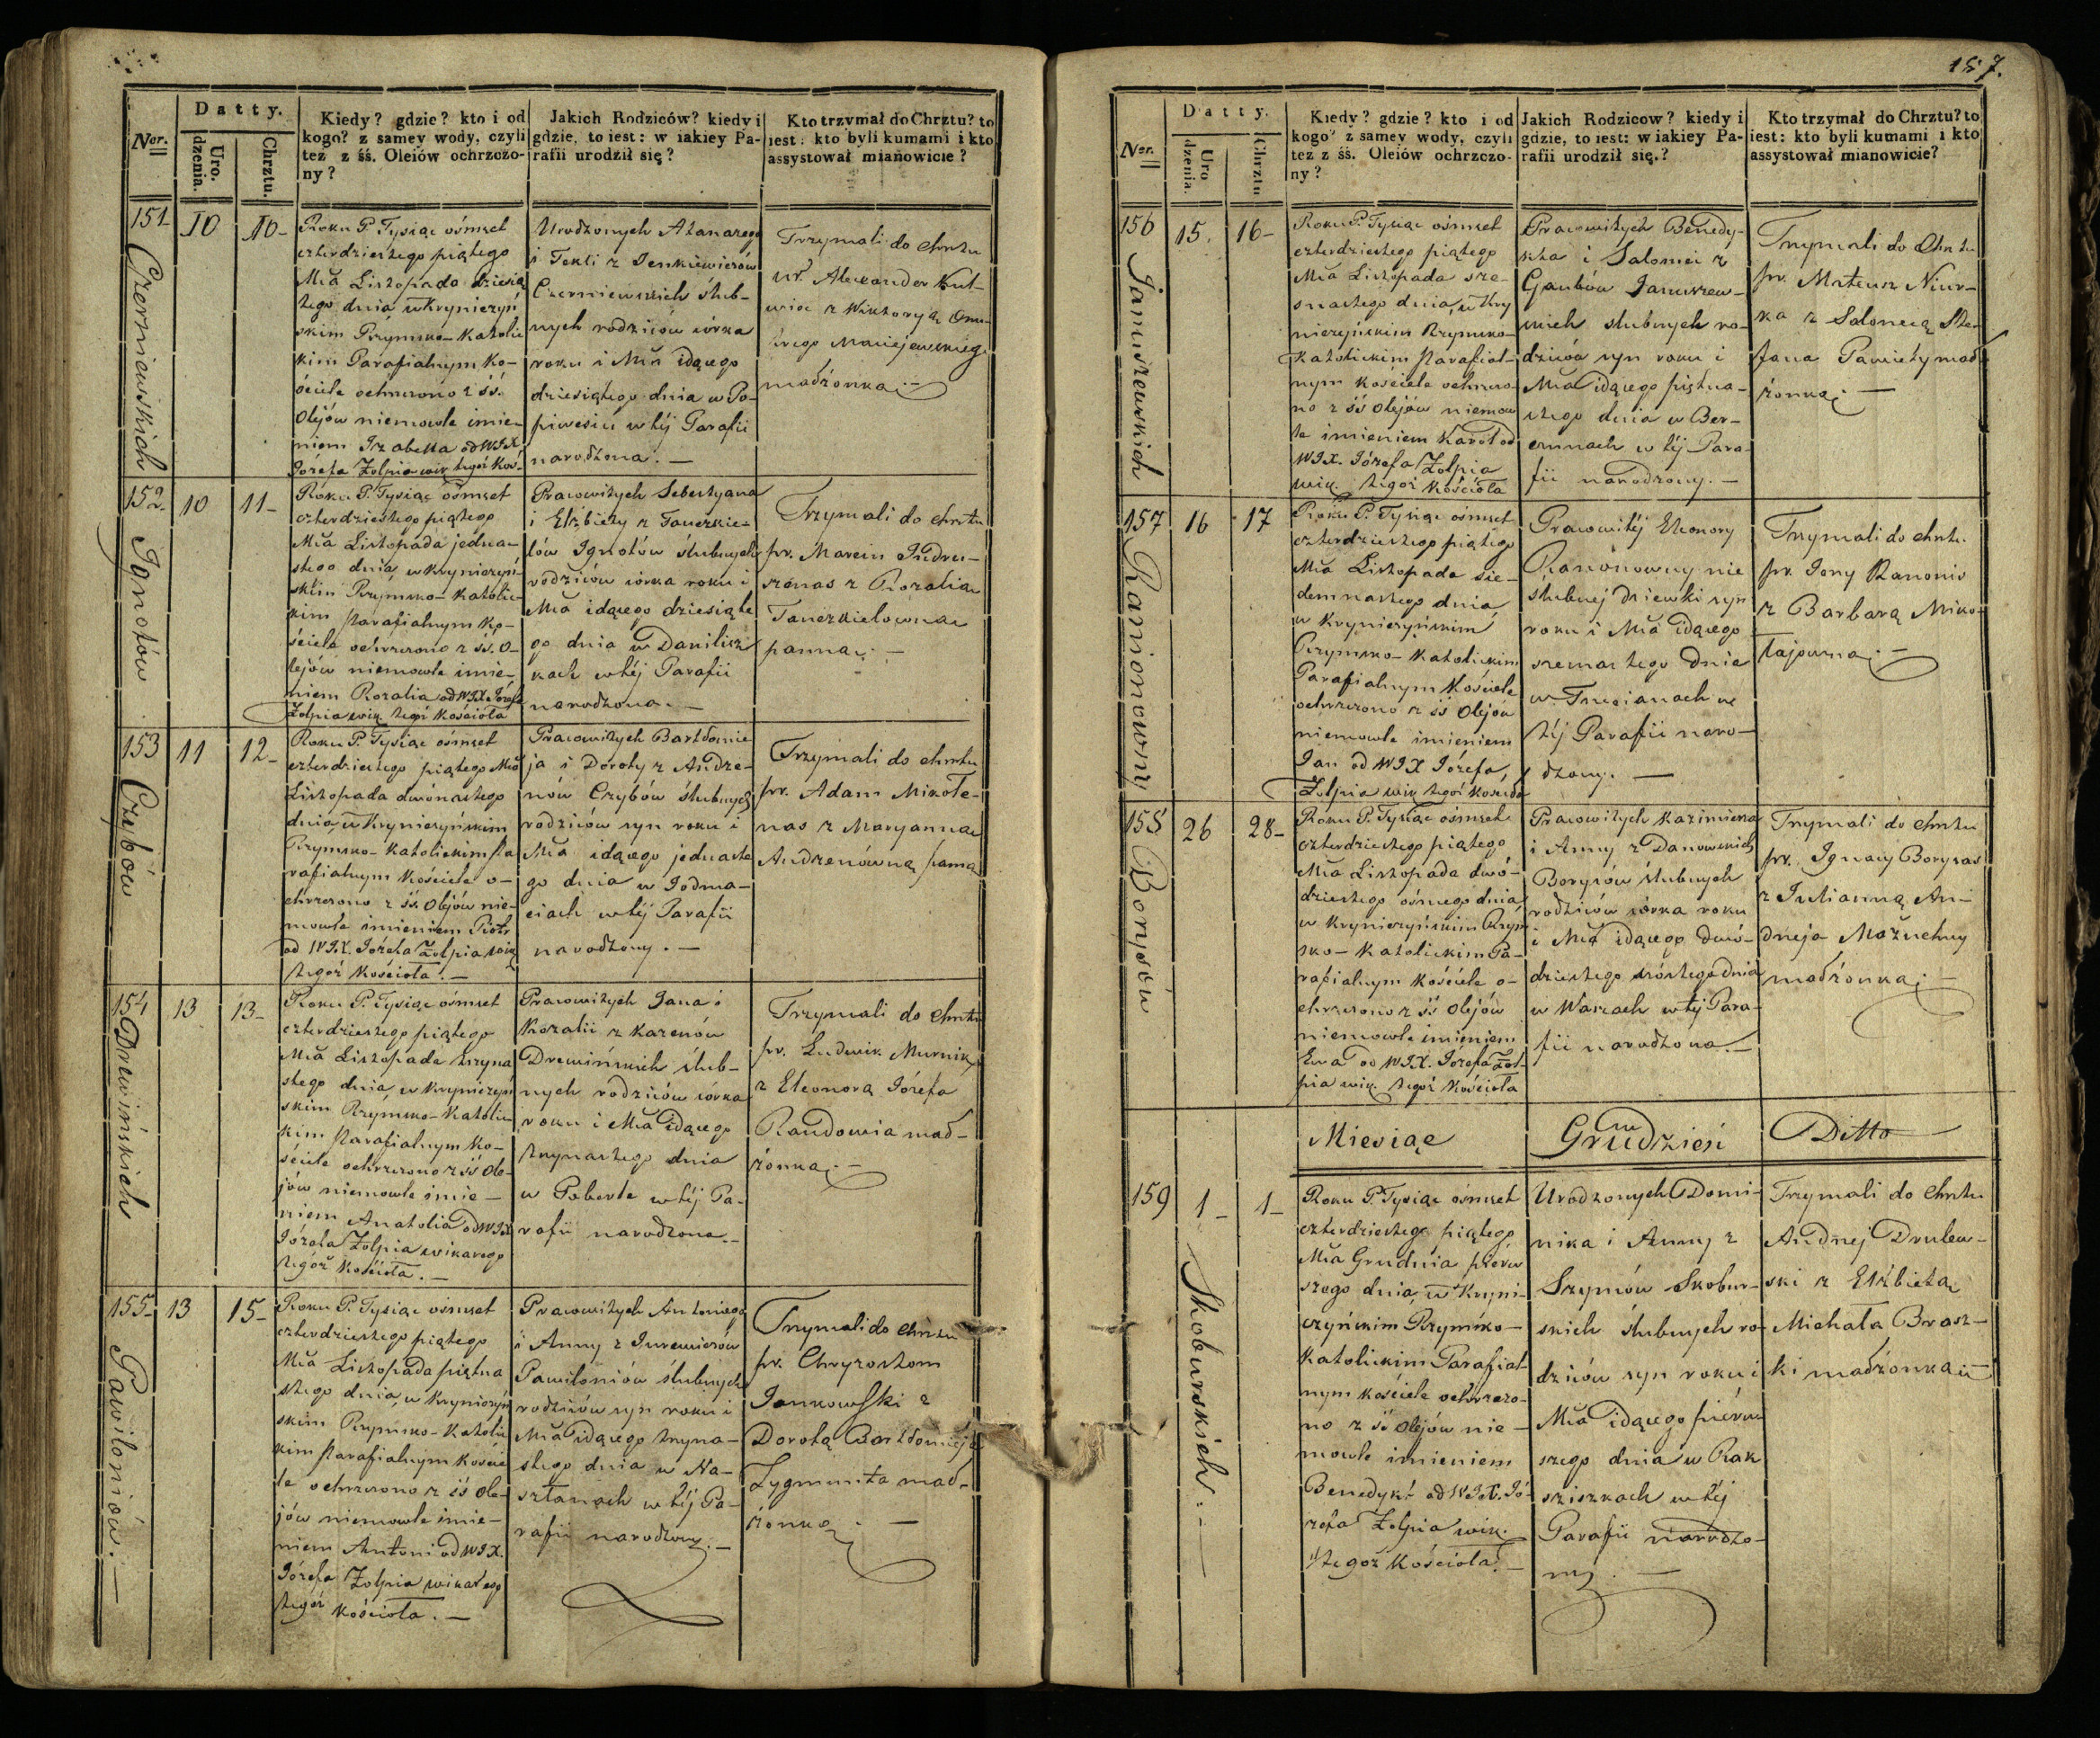 157.
Datty.
Ner.
Uro.
dzenia.
Chrztu.
Kiedy? gdzie? kto i od
kogo? z samey wody, czyli
tez z śś. Oleiów ochrzczo-
ny?
Jakich Rodziców? kiedy i
gdzie, to iest: w iakiey Pa-
rafii urodził się?
Kto trzymał do Chrztu? to
iest: kto byli kumami i kto
assystował mianowicie?
151
Czerniewskich
10
10-
Roku P. Tysiąc ośmset
czterdziestego piątego
Mca Listopada dziesią
tego dnia, w Kryniczyń
skim Rzymsko-Katolic
kim Parafialnym Ko-
ściele ochrzczono z śś.
Olejów niemowle imie-
niem Izabella od WJX
Józefa Żołpia wik. tegoż Koś.
Urodzonych Atanazego
i Tekli z Jenkiewiczów
Czerniewskich ślub-
nych rodziców córka
roku i Mca idącego
dziesiątego dnia w Po-
piwesiu w téj Parafii
narodzona. —
Trzymali do chrztu
ur. Alexander
z Wiktoryą
Maciejewskiego
małżonką. —
152
Ignotów
10
11-
Roku P. Tysiąc ośmset
czterdziestego piątego
Mca Listopada jedena-
stego dnia, w Kryniczyń-
skim Rzymsko-Katolic-
kim Parafialnym Ko-
ściele ochrzczono z śś. O-
lejów niemowle imie-
niem Rozalia od WJX Józefa
Żołpia wik. tegoż Kościoła
Pracowitych Sebestyana
i Elżbiety z Tanczkie-
lów Ignotów ślubnych
rodziców córka roku i
Mca idącego dziesiąte
go dnia w Danilisz
kach w téj Parafii
narodzona. —
Trzymali do chrztu
pr. Marcin Andru-
szonas z Rozalią
Tanczkielowną
panną. —
153
Czybów
11
12-
Roku P. Tysiąc ośmset
czterdziestego piątego Mca
Listopada dwónastego
dnia, w Kryniczyńskim
Rzymsko-Katolickim Pa
rafialnym Kościele o-
chrzczono z śś. Olejów nie-
mowle imieniem Piotr
od WJX. Józefa Żołpia wik.
tegoż Kościoła. —
Pracowitych Bartłomie
ja i Doroty z Andze-
nów Czybów ślubnych
rodziców syn roku i
Mca idącego jedenaste
go dnia w Jodma-
ciach w téj Parafii
narodzony. —
Trzymali do chrztu
pr. Adam Mikołe-
nas z Maryanną
Andzenówną panną
154
Drewińskich
13
13-
Roku P. Tysiąc ośmset
czterdziestego piątego
Mca Listopada trzyna
stego dnia, w Kryniczyń
skim Rzymsko-Katolic
kim Parafialnym Ko-
ściele ochrzczono z śś Ole-
jów niemowle imie-
niem Anatolia od WJX
Józefa Żołpia wikarego
tegóż Kościoła. —
Pracowitych Jana i
Rozalii z Kazenów
Drewińskich ślub-
nych rodziców córka
roku i Mca idącego
trzynastego dnia
w Poberże w téj Pa-
rafii narodzona. —
Trzymali do chrztu
pr. Ludwik Murnik
z Eleonorą Józefa
Randowia mał-
żonką. —
155-
Pawiloniów. —
13
15-
Roku P. Tysiąc ośmset
czterdziestego piątego
Mca Listopada piętna
stego dnia, w Krynicżyń
skim Rzymsko-Katolic
kim Parafialnym Koście
le ochrzczono z śś Ole-
jów niemowle imie-
niem Antoni od WJX.
Józefa Żołpia wikarego
tegoż Kościoła. —
Pracowitych Antoniego
i Anny z Jurewiczów
Pawiloniów ślubnych
rodziców syn roku i
Mca idącego trzyna-
stego dnia w Na-
sztanach w téj Pa-
rafii narodzony. —
Trzymali do chrztu
pr. Chryzostom
Jankowski z
Dorotą Bartłomieja
Zygmunta mał-
żonką. —
Datty.
Ner.
Uro
dzenia.
Chrztu
Kiedy? gdzie? kto i od
kogo? z samey wody, czyli
tez z śś. Oleiów ochrzczo-
ny?
Jakich Rodzicow? kiedy i
gdzie, to iest: w iakiey Pa-
rafii urodził się.?
Kto trzymał do Chrztu? to
iest: kto byli kumami i kto
assystował mianowicie?
156
Januszewskich
15.
16-
Roku P. Tysiąc ośmset
czterdziestego piątego
Mca Listopada sze-
snastego dnia, w Kry
niczyńskim Rzymsko-
Katolickim Parafial-
nym Kościele ochrzczo-
no z śś Olejów niemow
le imieniem Karol od
WJX. Józefa Żołpia
wik. tegoż Kościoła
Pracowitych Benedy-
kta i Salomei z
Gaubów Januszew-
skich ślubnych ro-
dziców syn roku i
Mca idącego piętna-
stego dnia w Ber-
cunach w téj Para-
fii narodzony. —
Trzymali do Chrztu
pr. Mateusz Niur-
ka z Salomeą Ste-
fana mał
żonką. —
157
Ranionowny
16
17
Roku P. Tysiąc ośmset
czterdziestego piątego
Mca Listopada sie-
demnastego dnia
w Krynicżyńskim
Rzymsko-Katolickim
Parafialnym Kościele
ochrzczono z śś Olejów
niemowle imieniem
Jan od WJX Józefa
Żołpia wik. tegoż Kościoła
Pracowitéj Eleonory
Ranionowny nie
ślubnej dziewki syn
roku i Mca idącego
szesnastego dnia
w Trucianach w
téj Parafii naro-
dzony. —
Trzymali do chrztu
pr. Jerzy Ranonis
z Barbarą Miko-
łajowną. —
158
Borysów
26
28-
Roku P. Tysiąc ośmset
czterdziestego piątego
Mca Listopada dwó-
dziestego ósmego dnia
w Krynicżyńskim Rzym
sko-Katolickim Pa-
rafialnym Kościele o-
chrzczono z śś Olejów
niemowle imieniem
Ewa od WJX. Józefa Żoł-
pia wik. tegoż Kościoła
Pracowitych Kazimierza
i Anny z Danowskich
Borysów ślubnych
rodziców córka roku
i Mca idącego dwó-
dziestego szóstego dnia
w Warzach w téj Para-
fii narodzona. —
Trzymali do chrztu
pr. Ignacy Borysas
z Julianną An-
drzeja Możuchny
małżonką. —
Miesiąc
Grudzień
Ditto
159
Skoburskich. —
1-
1-
Roku P. Tysiąc ośmset
czterdziestego piątego
Mca Grudnia pierw
szego dnia, w Kryni-
czyńskim Rzymsko-
Katolickim Parafial-
nym Kościele ochrzczo-
no z śś Olejów nie-
mowle imieniem
Benedykt od WJX. Jó-
zefa Żołpia wik.
tegoż Kościoła. —
Urodzonych Domi-
nika i Anny z
Szymów Skobur-
skich ślubnych ro-
dziców syn roku i
Mca idącego pierw
szego dnia w Rak
sziszkach w téj
Parafii narodzo-
ny. —
Trzymali do Chrztu
Andrzej Drulew-
ski z Elżbietą
Michała Brasz-
ki małżonką. —